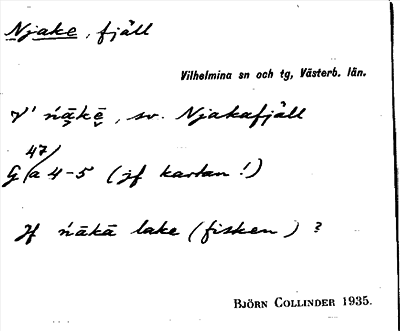 Njake, fjäll
Vilhelmina sn och tg, Västerb. län.
V' ńākē, sv. Njakafjäll
47/
G a 4-5 (jf kartan!)
Jf ńākā lake (fisken) ?
BJÖRN COLLINDER 1935.